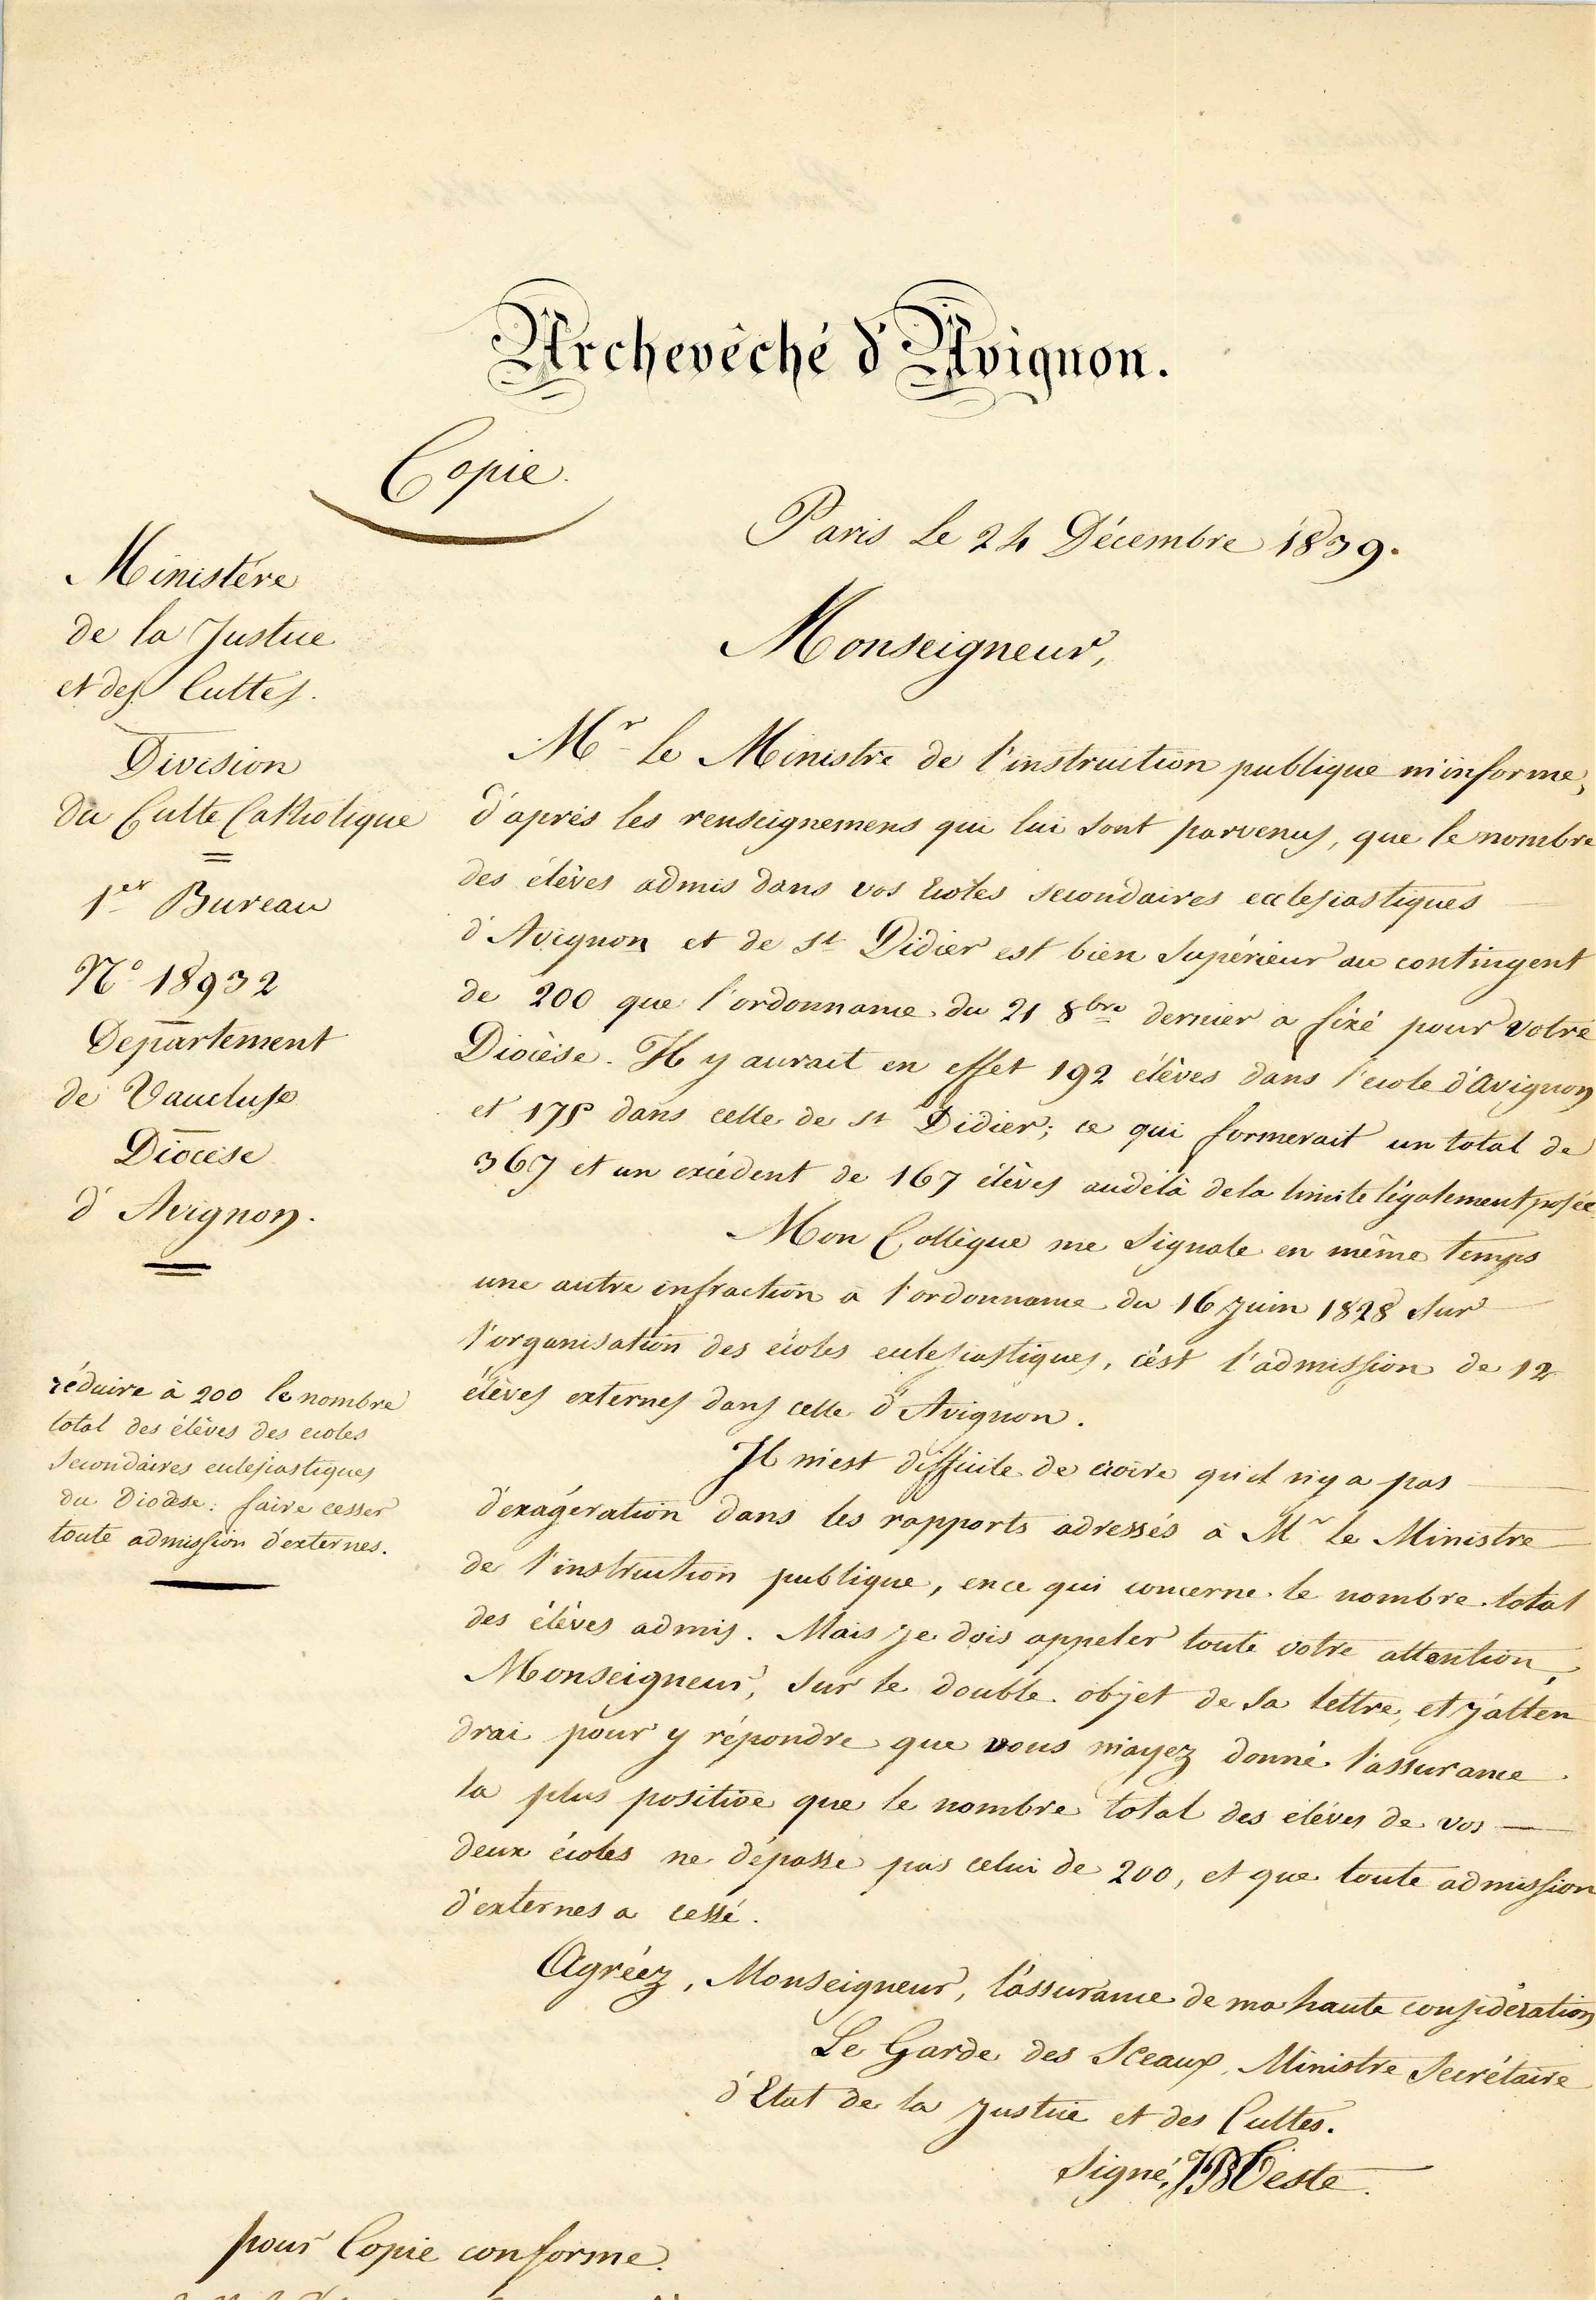 Archevêché d'Avignon.
Copie.
Paris le 24 Décembre 1839.
Ministère
de la Justice
et des Cultes.
Division
du Culte Catholique
1er Bureau
N° 18932
Departement
de Vaucluse
Diocèse
d'Avignon.
réduire à 200 le nombre
total des élèves des ecoles
Secondaires eclesiastiques
du Diocèse: faire cesser
toute admission d'externes.
Monseigneur,
Mr le Ministre de l'instruction publique m'informe,
d'après les renseignemens qui lui sont parvenus, que le nombre
des élèves admis dans vos Ecoles secondaires ecclesiastiques
d'Avignon et de St Didier est bien Supérieur au contingent
de 200 que l'ordonnance du 21 8bre dernier a fixé pour votre
Diocèse. Il y aurait en effet 192 élèves dans l'ecole d'Avignon
et 175 dans celle de St Didier; ce qui formerait un total de
367 et un excédent de 167 élèves audelà de la limite légalement posée.
Mon Collègue me Signale en même temps
une autre infraction à l'ordonnance du 16 Juin 1828 Sur
l'organisation des écoles eclesiastiques, c'ést l'admission de 12
élèves externes dans celle d'Avignon.
Il m'est difficile de croire qu'il n'y a pas
d'exagération dans les rapports adressés à Mr le Ministre
de l'instruction publique, en ce qui concerne le nombre total
des élèves admis. Mais je dois appeler toute votre attention,
Monseigneur, Sur le double objet de Sa lettre, et j'atten
drai pour y répondre que vous m'ayez donné l'assurance
la plus positive que le nombre total des elèves de vos
deux écoles ne dépasse pas celui de 200, et que toute admission
d'externes a cessé.
Agréez, Monseigneur, l'assurance de ma haute considération
Le Garde des Sceaux, Ministre Secrétaire
d'Etat de la Justice et des Cultes.
Signé, JB Teste.
pour Copie conforme.